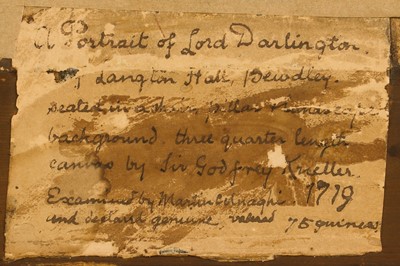 A Portrait of Lord Darlington.
Langton Hall, Bewdley.
seated in a
background three quarter length
canvas by Sir Godfrey Kneller.
Examined by Martin Colnaghi 1719
and declared genuine. valued 75 guineas